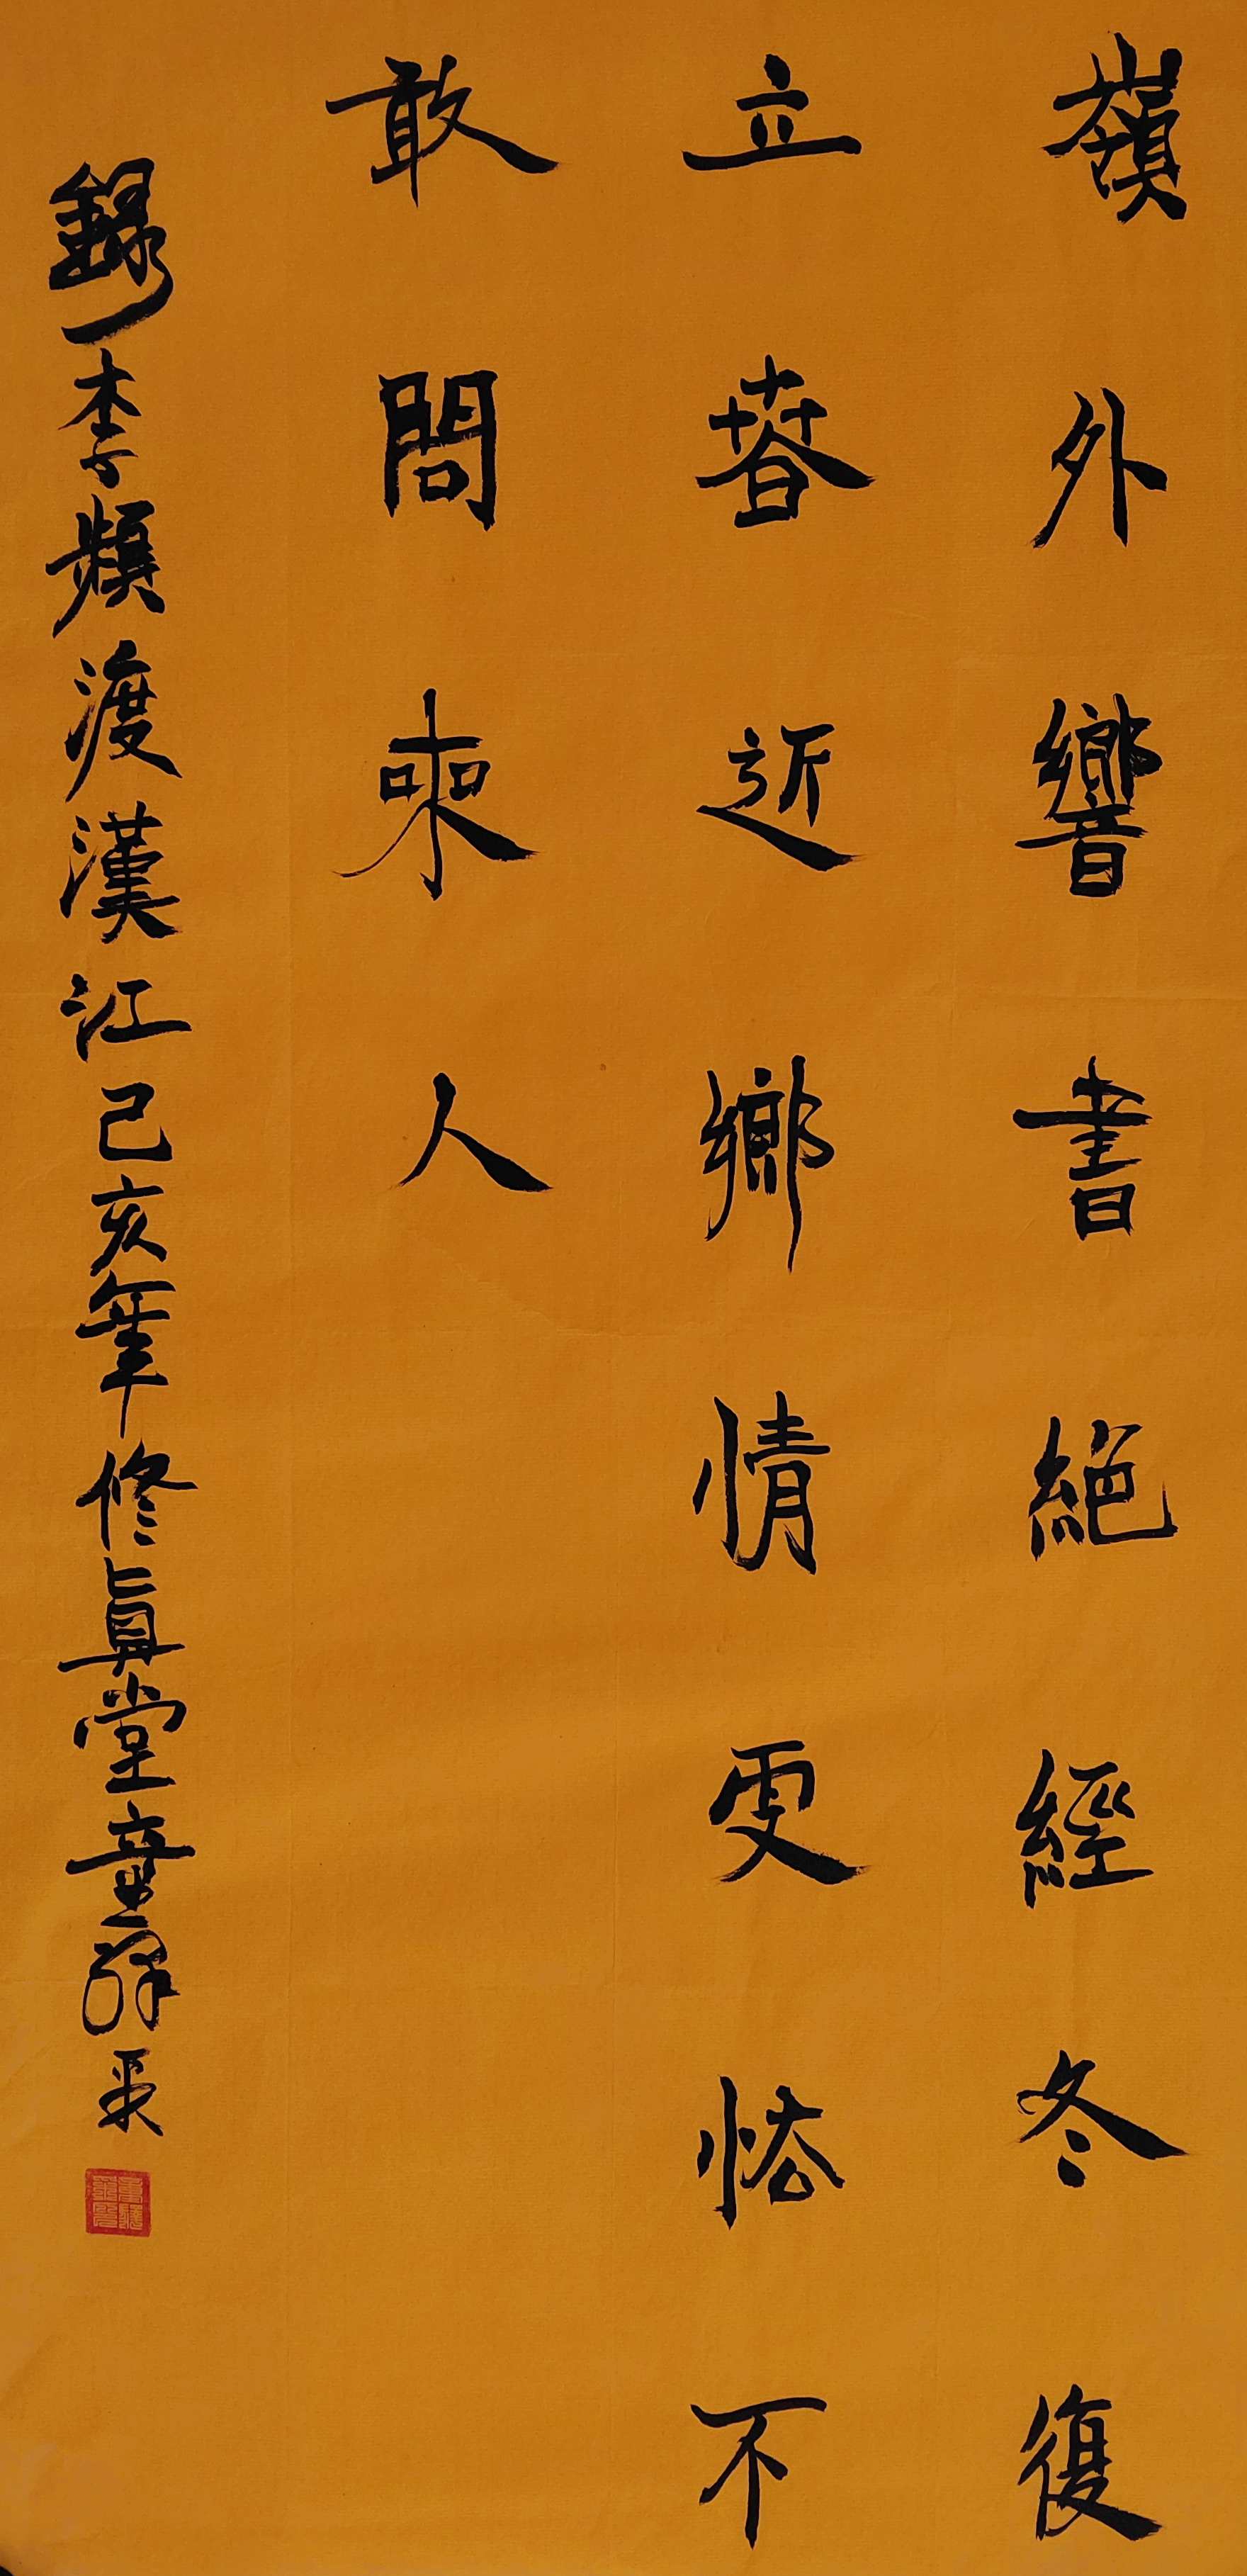 嶺外響書絕經冬復
立春近鄉情更恡不
敢問來人
錄李頻渡漢江己亥年修真堂童辉